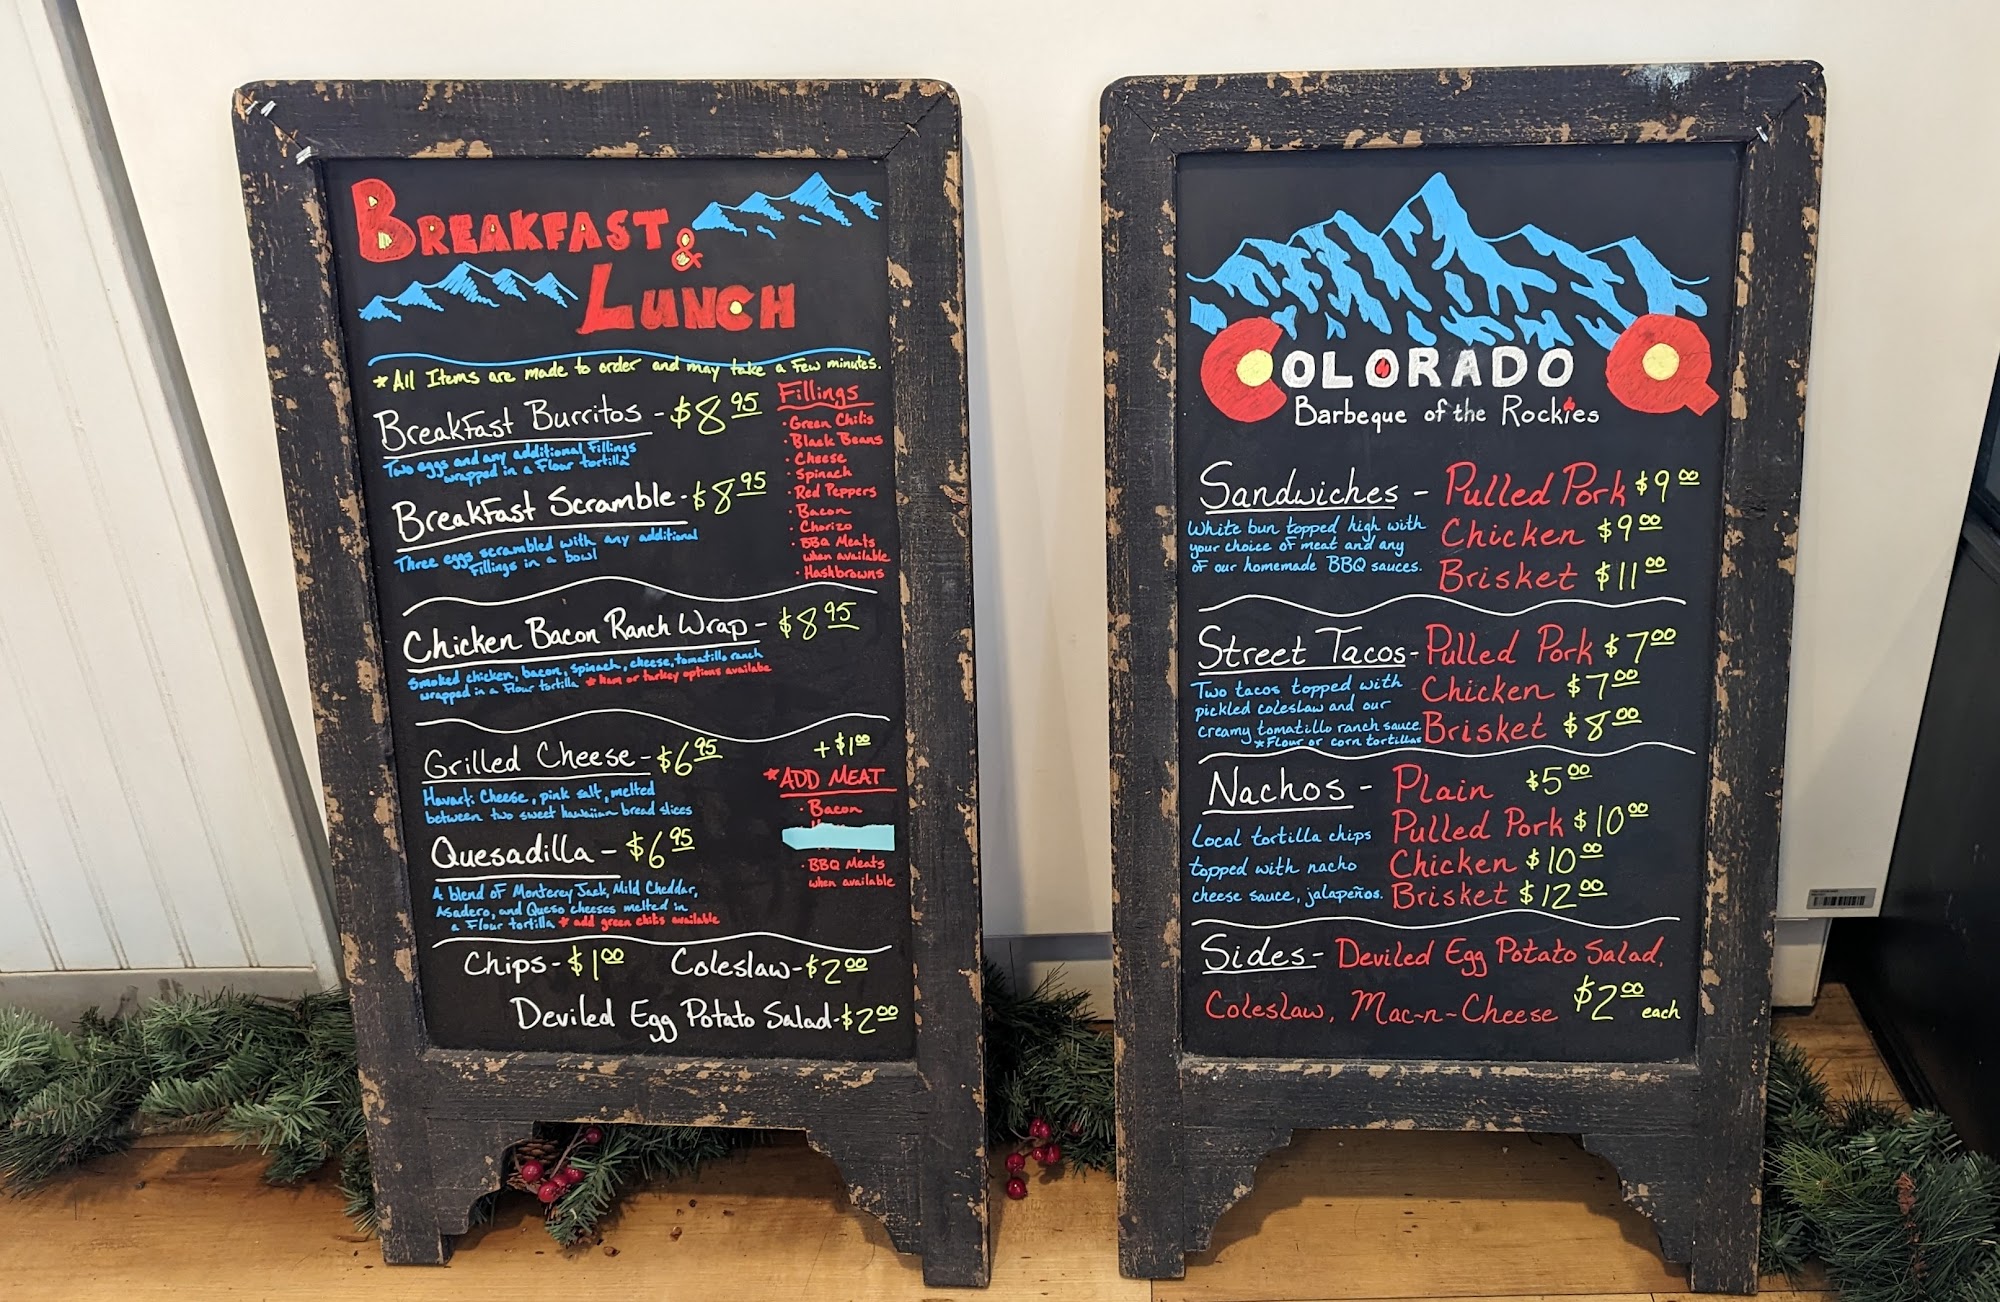 BREAKFAST &
LUNCH
*All Items are made to order and may take a few minutes.
Breakfast Burritos - $8.95
Two eggs and any additional fillings
wrapped in a flour tortilla
Breakfast Scramble - $8.95
Three eggs scrambled with any additional
fillings in a bowl
Fillings
• Green Chilis
• Black Beans
• Cheese
• Spinach
• Red Peppers
• Bacon
• Chorizo
• BBQ Meats
when available
• Hashbrowns
Chicken Bacon Ranch Wrap - $8.95
Smoked chicken, bacon, spinach, cheese, tomatillo ranch
wrapped in a flour tortilla *ham or turkey options availabe
Grilled Cheese - $6.95
Havarti Cheese, pink salt, melted
between two sweet hawaiian bread slices
Quesadilla - $6.95
A blend of Monterey Jack, Mild Cheddar,
Asadero, and Queso cheeses melted in
a flour tortilla *add green chilis available
+$1.00
*ADD MEAT
• Bacon
• BBQ Meats
when available
Chips - $1.00 Coleslaw - $2.00
Deviled Egg Potato Salad - $2.00
COLORADO Q
Barbeque of the Rockies
Sandwiches - Pulled Pork $9.00
Chicken $9.00
Brisket $11.00
White bun topped high with
your choice of meat and any
of our homemade BBQ sauces.
Street Tacos - Pulled Pork $7.00
Chicken $7.00
Brisket $8.00
Two tacos topped with
pickled coleslaw and our
creamy tomatillo ranch sauce.
*Flour or corn tortillas
Nachos - Plain $5.00
Pulled Pork $10.00
Chicken $10.00
Brisket $12.00
Local tortilla chips
topped with nacho
cheese sauce, jalapeños.
Sides - Deviled Egg Potato Salad,
Coleslaw, Mac-n-Cheese $2.00 each